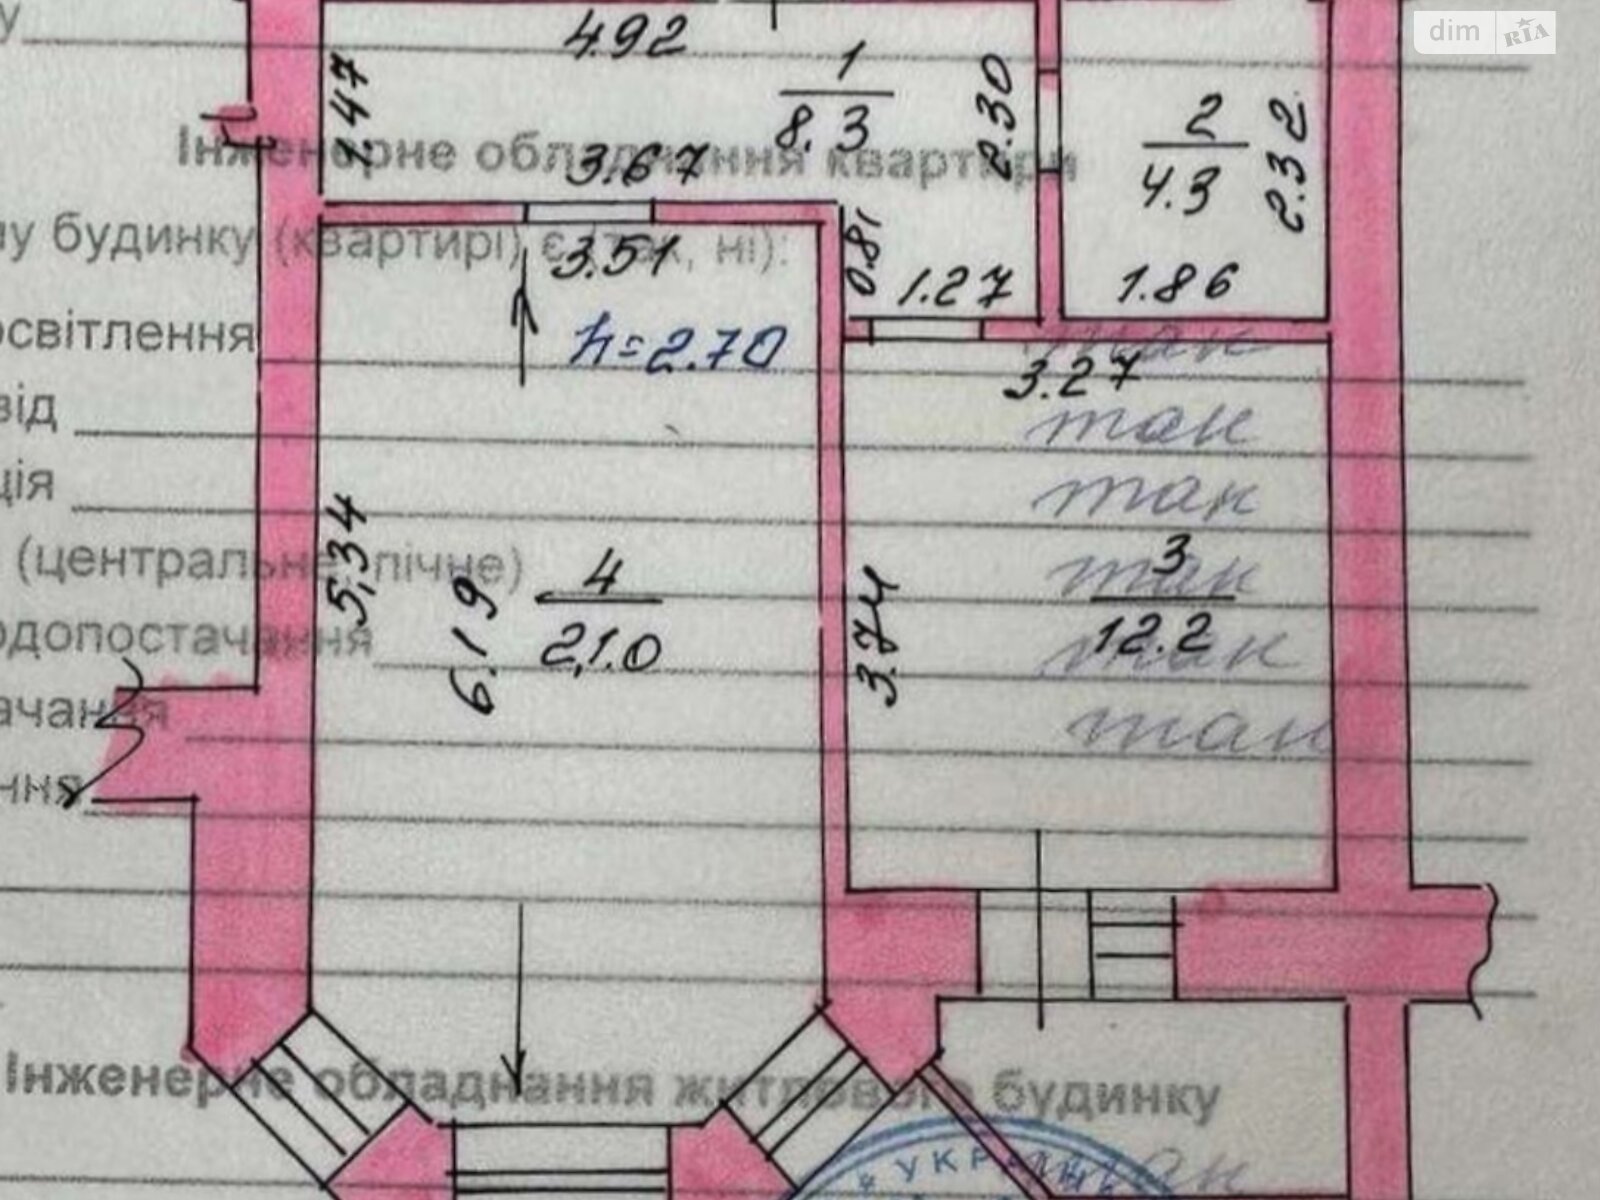 dim RIA
4.92
1
8.3
1.47
2.30
2
4.3
2.32
Інженерне обладнання квартири
3.67
му будинку (квартирі) є (так, ні):
3.51
0.81
1.27
1.86
h=2.70
освітлення
так
3.27
від
так
ція
так
5,34
(центральне, пічне)
так
6.19
4
21.0
3.74
3
12.2
одопостачання
так
ачання
так
ння
Інженерне обладнання житлового будинку
УКРА
так